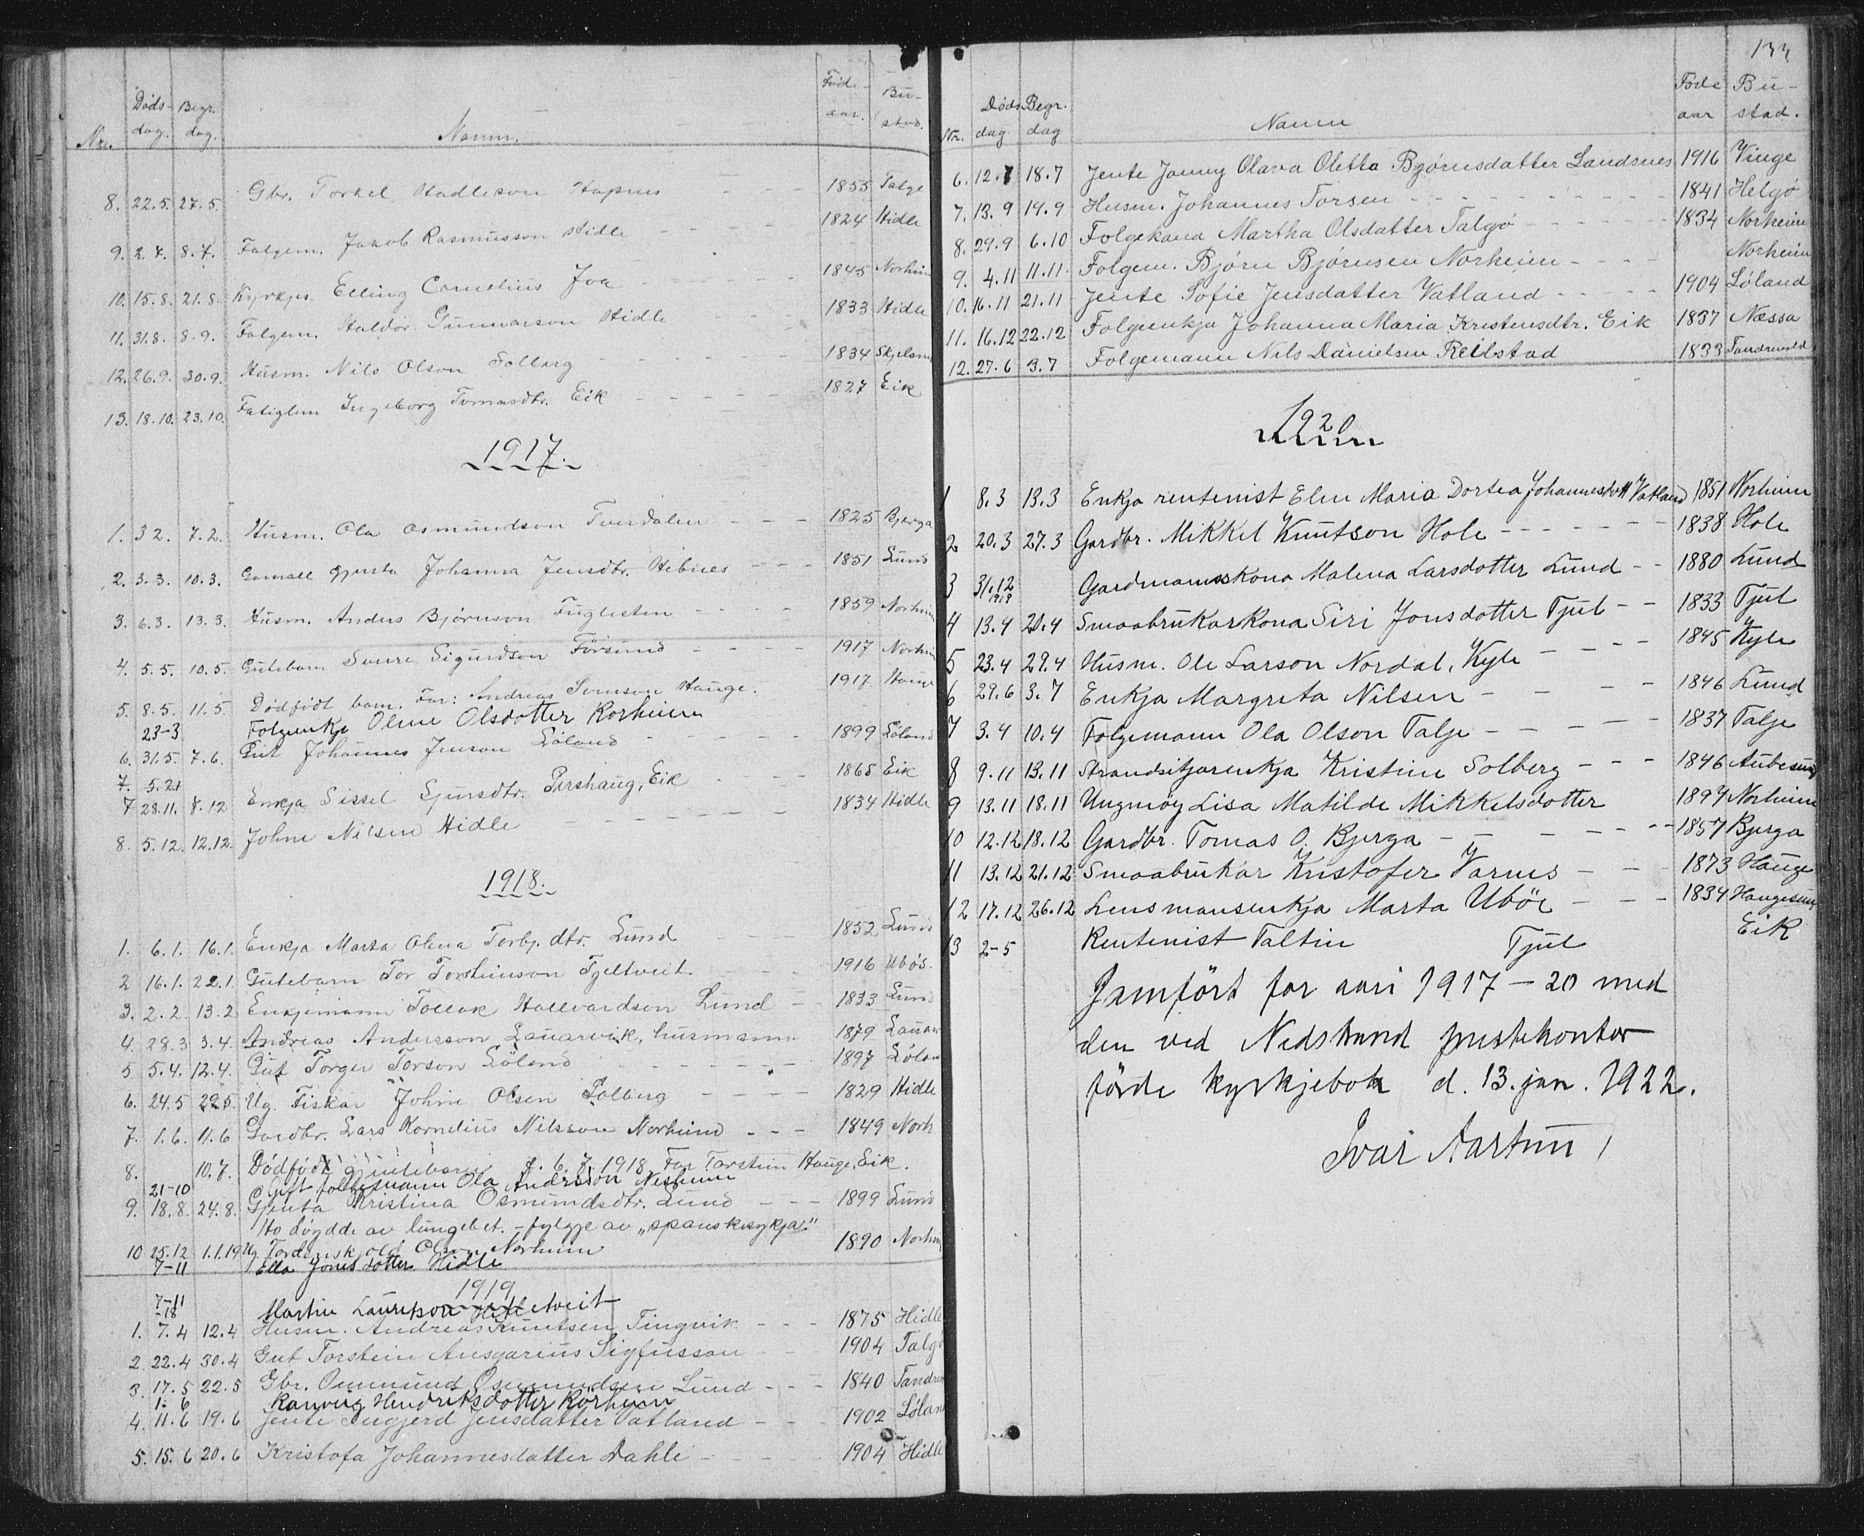 Nr. Døds-dag. Begr. dag. Namn. Føde-aar. Bu-stad.
8. 22.5. 27.5. Gbr. Torkel 1855 Talge
9. 2.7. 8.7. Folgem. Jakob Rasmusson Hidle 1824 Hidle
10. 15.8. 21.8. Kyrkjes. Elling Cornelius Joa 1845 Norheim
11. 31.8. 8.9. Folgem. Haldor Gunnarson Hidle 1833 Hidle
12. 26.9. 30.9. Husm. Nils Olson Solberg 1834
13. 18.10. 23.10. Fatiglem Ingeborg Tomasdtr. Eik 1827 Eik
1917.
1. 3 2. 7.2. Husm. Ola Osmundson Tverdalen 1825 Bjerga
2. 3.3. 10.3. Gamall gjenta Johanna Jensdtr. Hibnes 1851 Lund
3. 6.3. 13.3. Husm. Anders Bjørnson Fuglesten 1859 Norheim
4. 5.5. 10.5. Gutebarn Sverre Sigurdson Førsund 1917 Norheim
5. 8.5. 11.5. Dødfødt barn. Far: Andreas Simson Hauge. 1917 Hauge
23-3 Folgeenkje Oline Olsdotter Norheim
6. 31.5. 7.6. Gut Johannes Jenson Løland 1899 Løland
7. 5.21
7 28.11. 8.12 Enkja Sissel Sjursdtr. Porshaug, Eik 1865 Eik
8. 5.12. 12.12. Johne Nilsen Hidle 1834 Hidle
1918.
1. 6.1. 16.1. Enkja Marta Olena Torbj.dtr. Lund 1852 Lund
2 16.1. 22.1 Gutebarn Tor Torsteinson Tjeltveit 1916 Ubøs.
3. 2.2. 13.2 Enkjemann Tollak Hallvardson Lund 1833 Lund
4. 28.3 3.4. Andreas Andersson Lauarvik, husmann 1879 Lauar
5 5.4. 12.4. Gut Torger Torson Løland 1897 Løland
6. 24.5 29.5. Ug. Fiskar Johne Olsen Solberg 1829 Hidle
7. 1.6. 11.6 Gardbr. Lars Kornelius Nilsson Norheim 1849 Norh
8. 10.7. Dødfødt gjentebarn f. 6.7. 1918, Far Torstein Hauge, Eik.
21-10 Gift folgemann Ola Andersson Nesheim
9. 18.8. 24.8. Gjenta Kristina Osmundsdtr. Lund 1899 Lund
Ho døydde av lungebet. - fylgje av "spanskesykja."
10 25.12 1.1.19 Ug. Tordenskold Olsen Norheim 1890 Norheim
7-11 Ella Jonesdotter Hidle
1919
7-11 -18 Martin Lauritson Hidle
1. 7.4 12.4 Husm. Andreas Knutsen Tingvik 1875 Hidle
2. 22.4 30.4 Gut Torstein Ansgarius Sigfusson 1904 Talg
3. 17.5 22.5 Gbr. Osmund Osmundsen Lund 1840
1. 6 Ranveig Hendriksdotter Norheim
4. 11.6 19.6 Jente Ingjerd Jensdatter Vatland 1902 Løland
5. 15.6 20.6 Kristofa Johannesdatter Dahle 1904 Hidle
133
Nr. Døds dag Begr. dag Namn Føde aar Bu-stad.
6. 12.7 18.7 Jente Jonny Olava Oletta Bjørnsdatter Landsnes 1916 Vinge
7. 13.9 19.9 Husm. Johannes Torsen 1841 Helgø
8. 29.9 6.10 Folgekona Martha Olsdatter Talgø 1834 Norheim
9. 4.11 11.11. Folgem. Bjørn Bjørnsen Norheim Norheim
10. 16.11 21.11 Jente Sofie Jensdatter Vatland 1904 Løland
11. 16.12 22.12 Folgeenkja Johanna Maria Kristensdtr. Eik 1837 Næssa
12. 27.6 3.7 Folgemann Nils Danielsen Reilstad 1833
1920
1 8.3 13.3 Enkja rentenist Elen Maria Dortea Johannesdott Vatland 1851 Norheim
2 20.3 27.3 Gardbr. Mikkel Knutson Hole 1838 Hole
3 31.12 1919 Gardmannskona Malena Larsdotter Lund 1880 Lund
4 13.4 20.4 Smaabrukarkona Siri Jonsdotter Tjul 1833 Tjul
5 23.4 29.4 Husm. Ole Larson Nordal, Kyle 1845 Kyle
6 29.6 3.7 Enkja Margreta Nilsen 1846 Lund
7 3.4 10.4 Folgemann Ola Olson Talje 1837 Talje
8 9.11 13.11 Strandsitjarenkja Kristine Solberg 1846
9 13.11 18.11 Ungmøy Lisa Matilde Mikkelsdotter 1897 Norheim
10 12.12 18.12 Gardbr. Tomas O. Bjerga 1857 Bjerga
11 13.12 21.12 Smaabrukar Kristofer Varnes 1873 Hauge
12 17.12 26.12 Lensmansenkja Marta Ubøe 1834 Haugesund
13 2-5 Rentenist Taltin Tjul Eik
Jamført for aari 1917 - 20 med
den ved Nedstrand prestekontor
førde kyrkjebok d. 13. jan. 1922.
Ivar Aartun